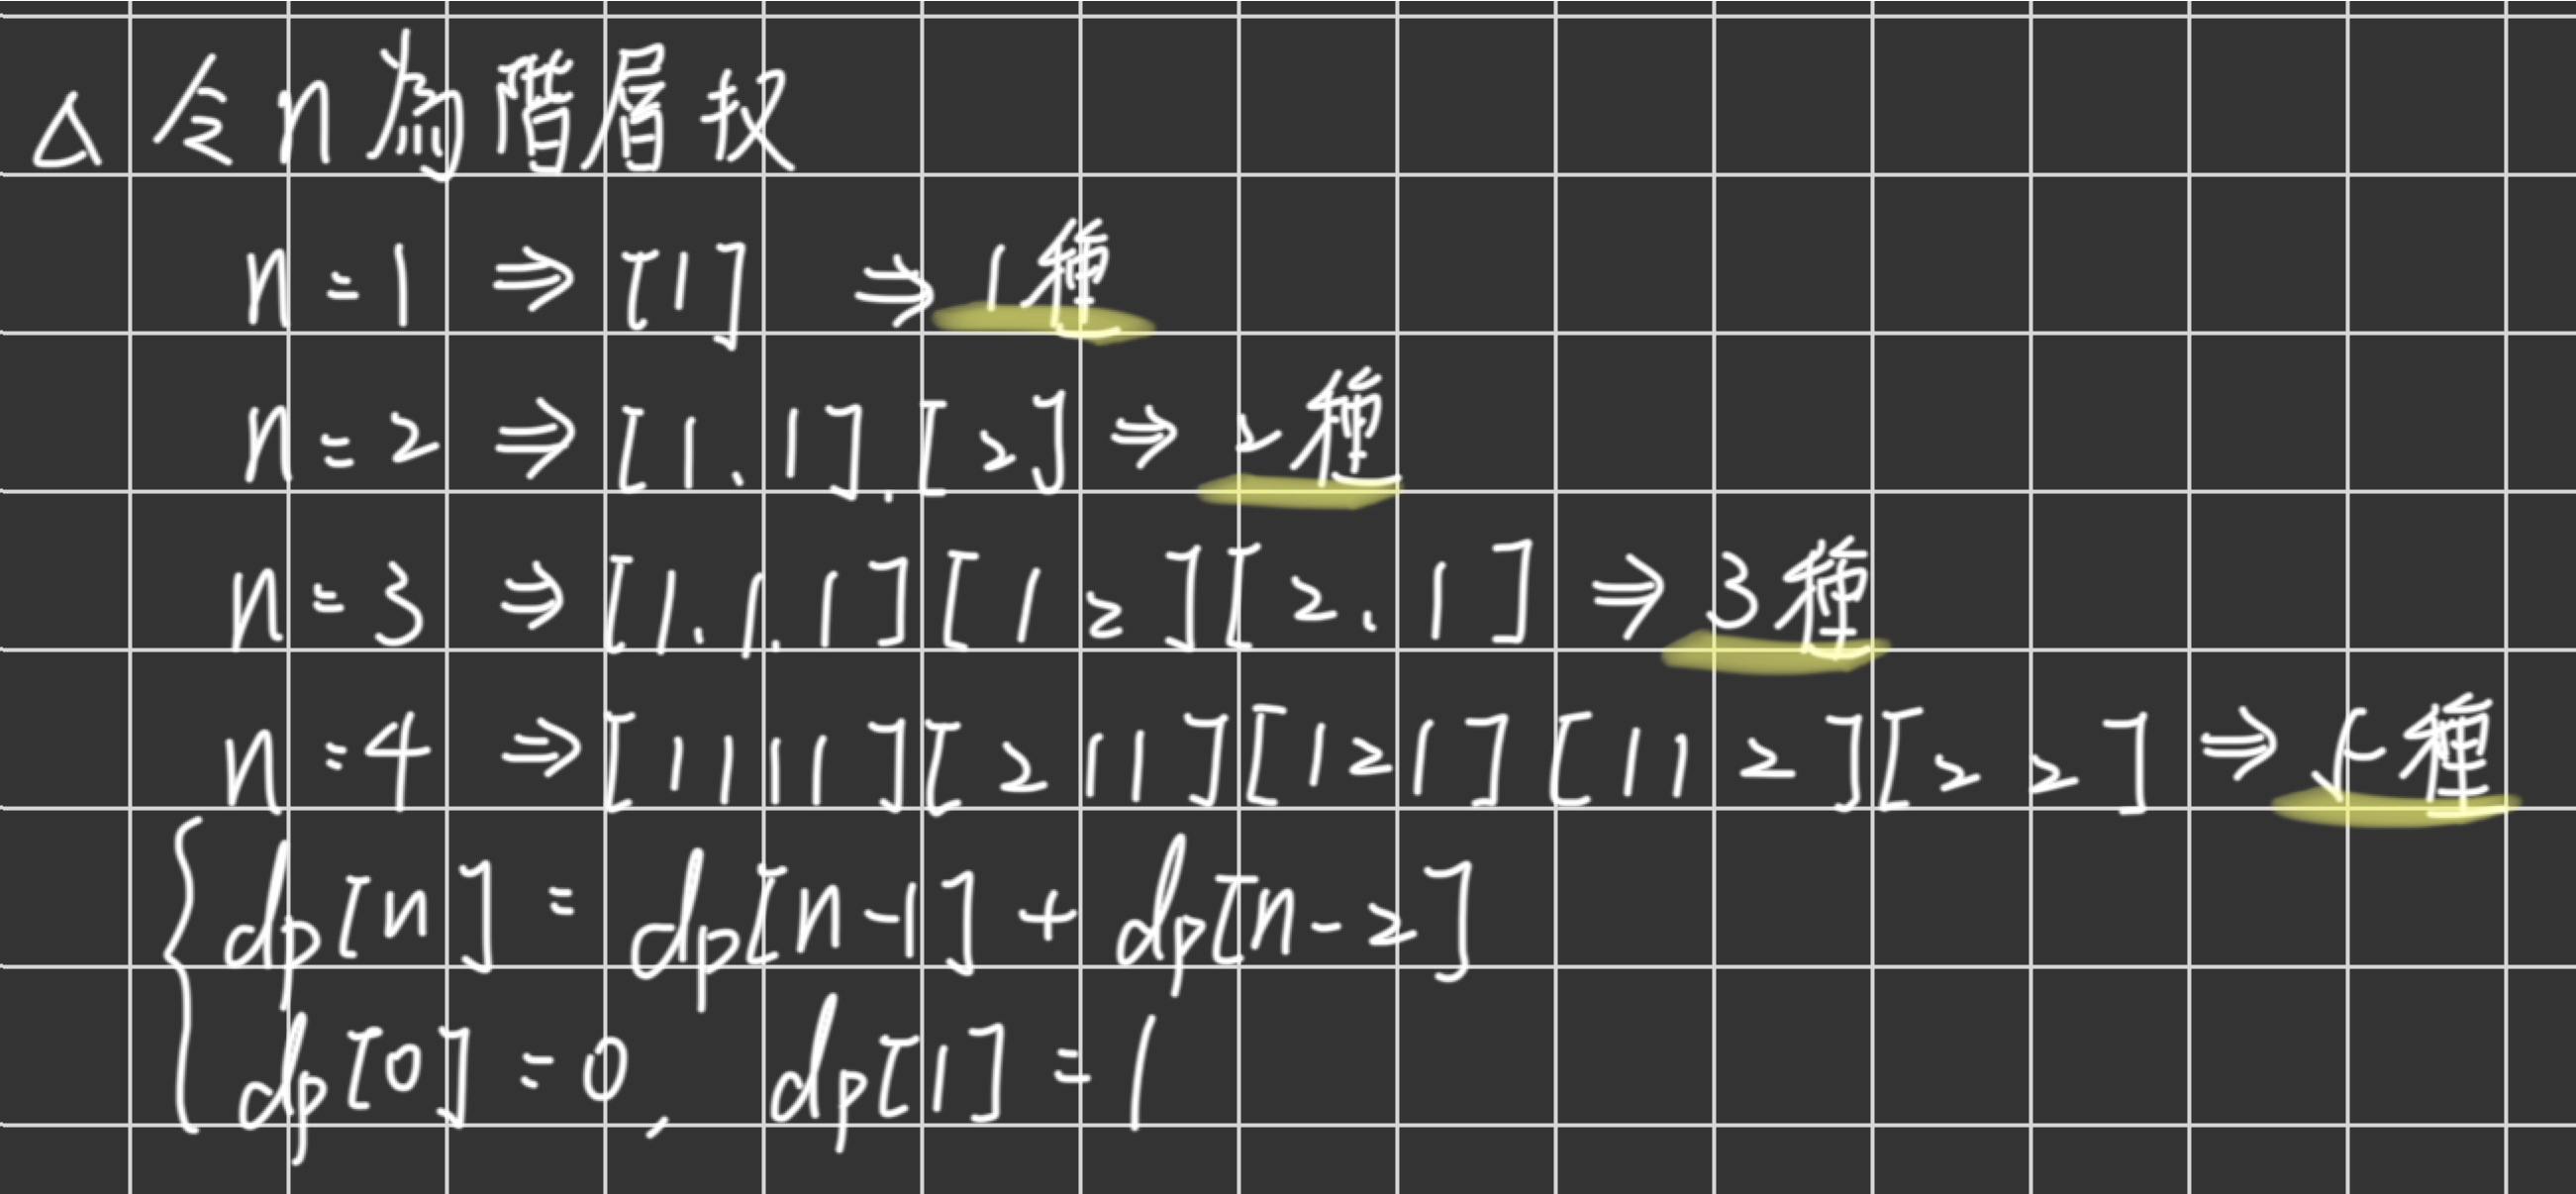 △ 令n為階層权
n=1 ⇒ [1] ⇒ 1種
n=2 ⇒ [1.1].[2] ⇒ 2種
n=3 ⇒ [1.1.1][1 2][2.1] ⇒ 3種
n=4 ⇒ [1111][211][121][112][2 2] ⇒ 5種
dp[n] = dp[n-1] + dp[n-2]
dp[0] = 0, dp[1] = 1